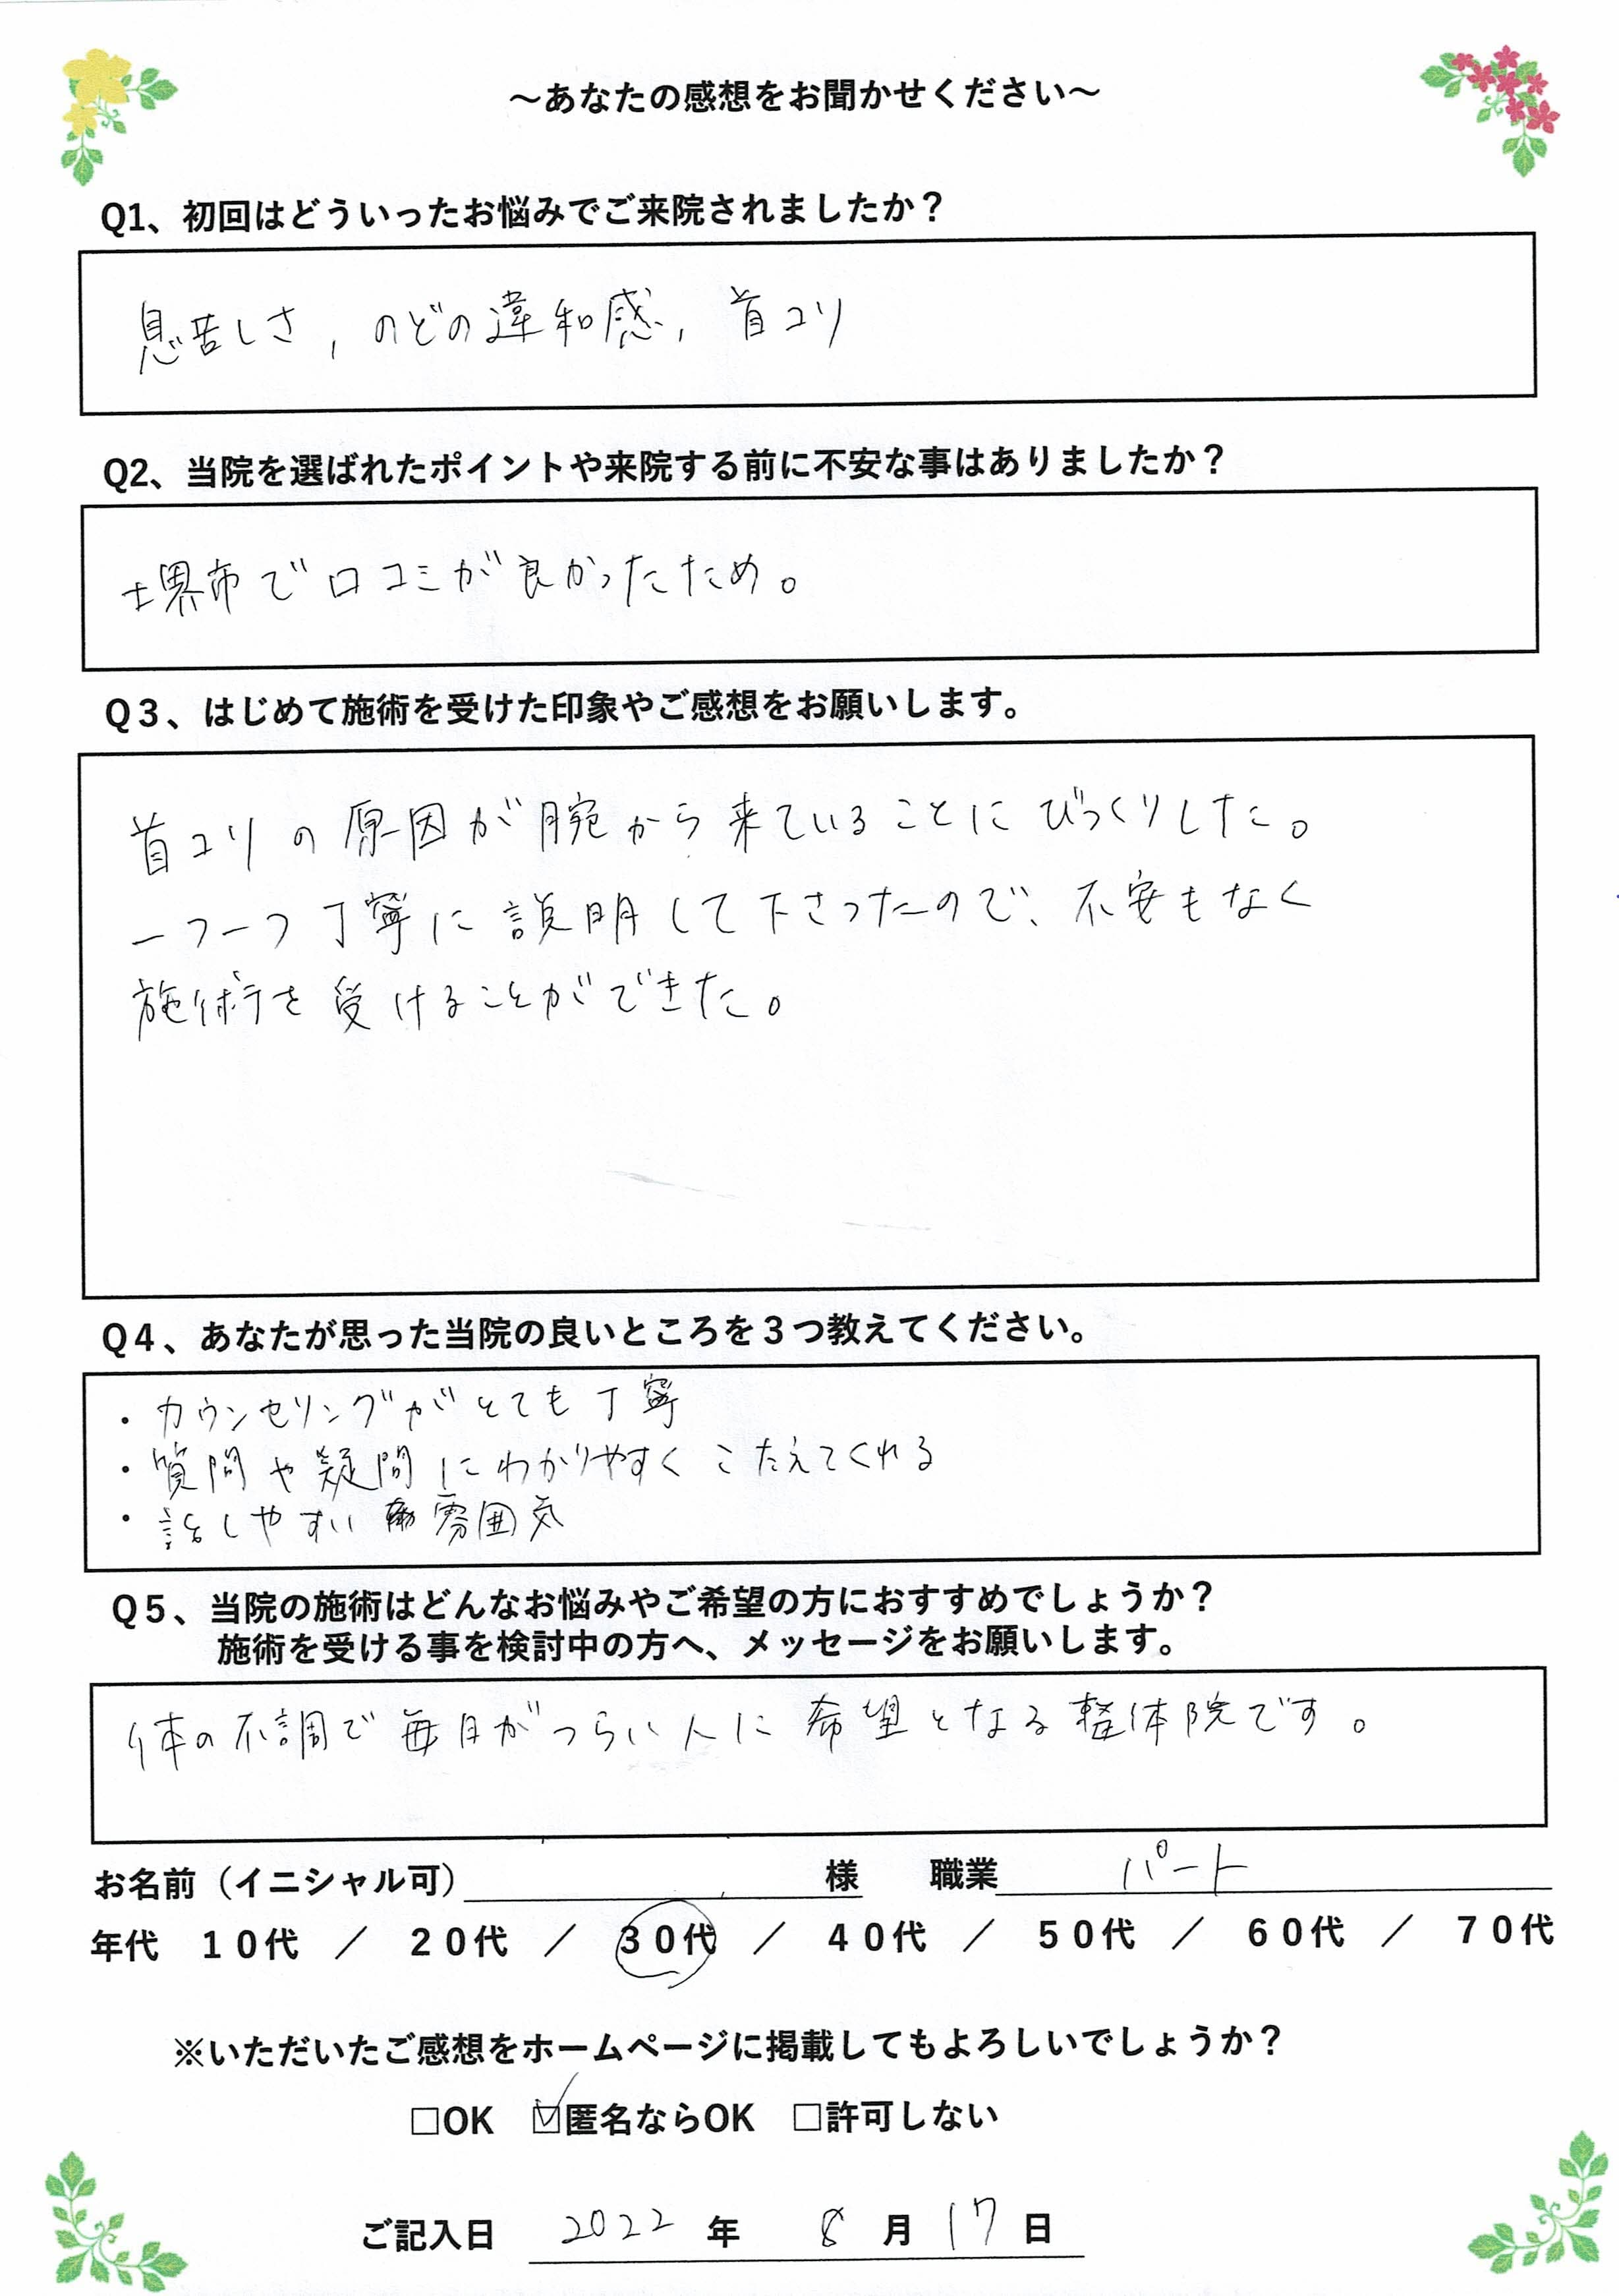 ～あなたの感想をお聞かせください～
Q1、初回はどういったお悩みでご来院されましたか？
息苦しさ，のどの違和感，首コリ
Q2、当院を選ばれたポイントや来院する前に不安な事はありましたか？
堺市で口コミが良かったため。
Q３、はじめて施術を受けた印象やご感想をお願いします。
首コリの原因が腕から来ていることにびっくりした。
一つ一つ丁寧に説明して下さったので、不安もなく
施術を受けることができた。
Q４、あなたが思った当院の良いところを３つ教えてください。
・カウンセリングがとても丁寧
・質問や疑問にわかりやすくこたえてくれる
・話しやすい雰囲気
Q５、当院の施術はどんなお悩みやご希望の方におすすめでしょうか？
施術を受ける事を検討中の方へ、メッセージをお願いします。
体の不調で毎日がつらい人に希望となる整体院です。
お名前（イニシャル可） 様 職業 パート
年代 １０代 ／ ２０代 ／ ３０代 ／ ４０代 ／ ５０代 ／ ６０代 ／ ７０代
※いただいたご感想をホームページに掲載してもよろしいでしょうか？
□OK ☑匿名ならOK □許可しない
ご記入日 2022 年 8 月 17 日